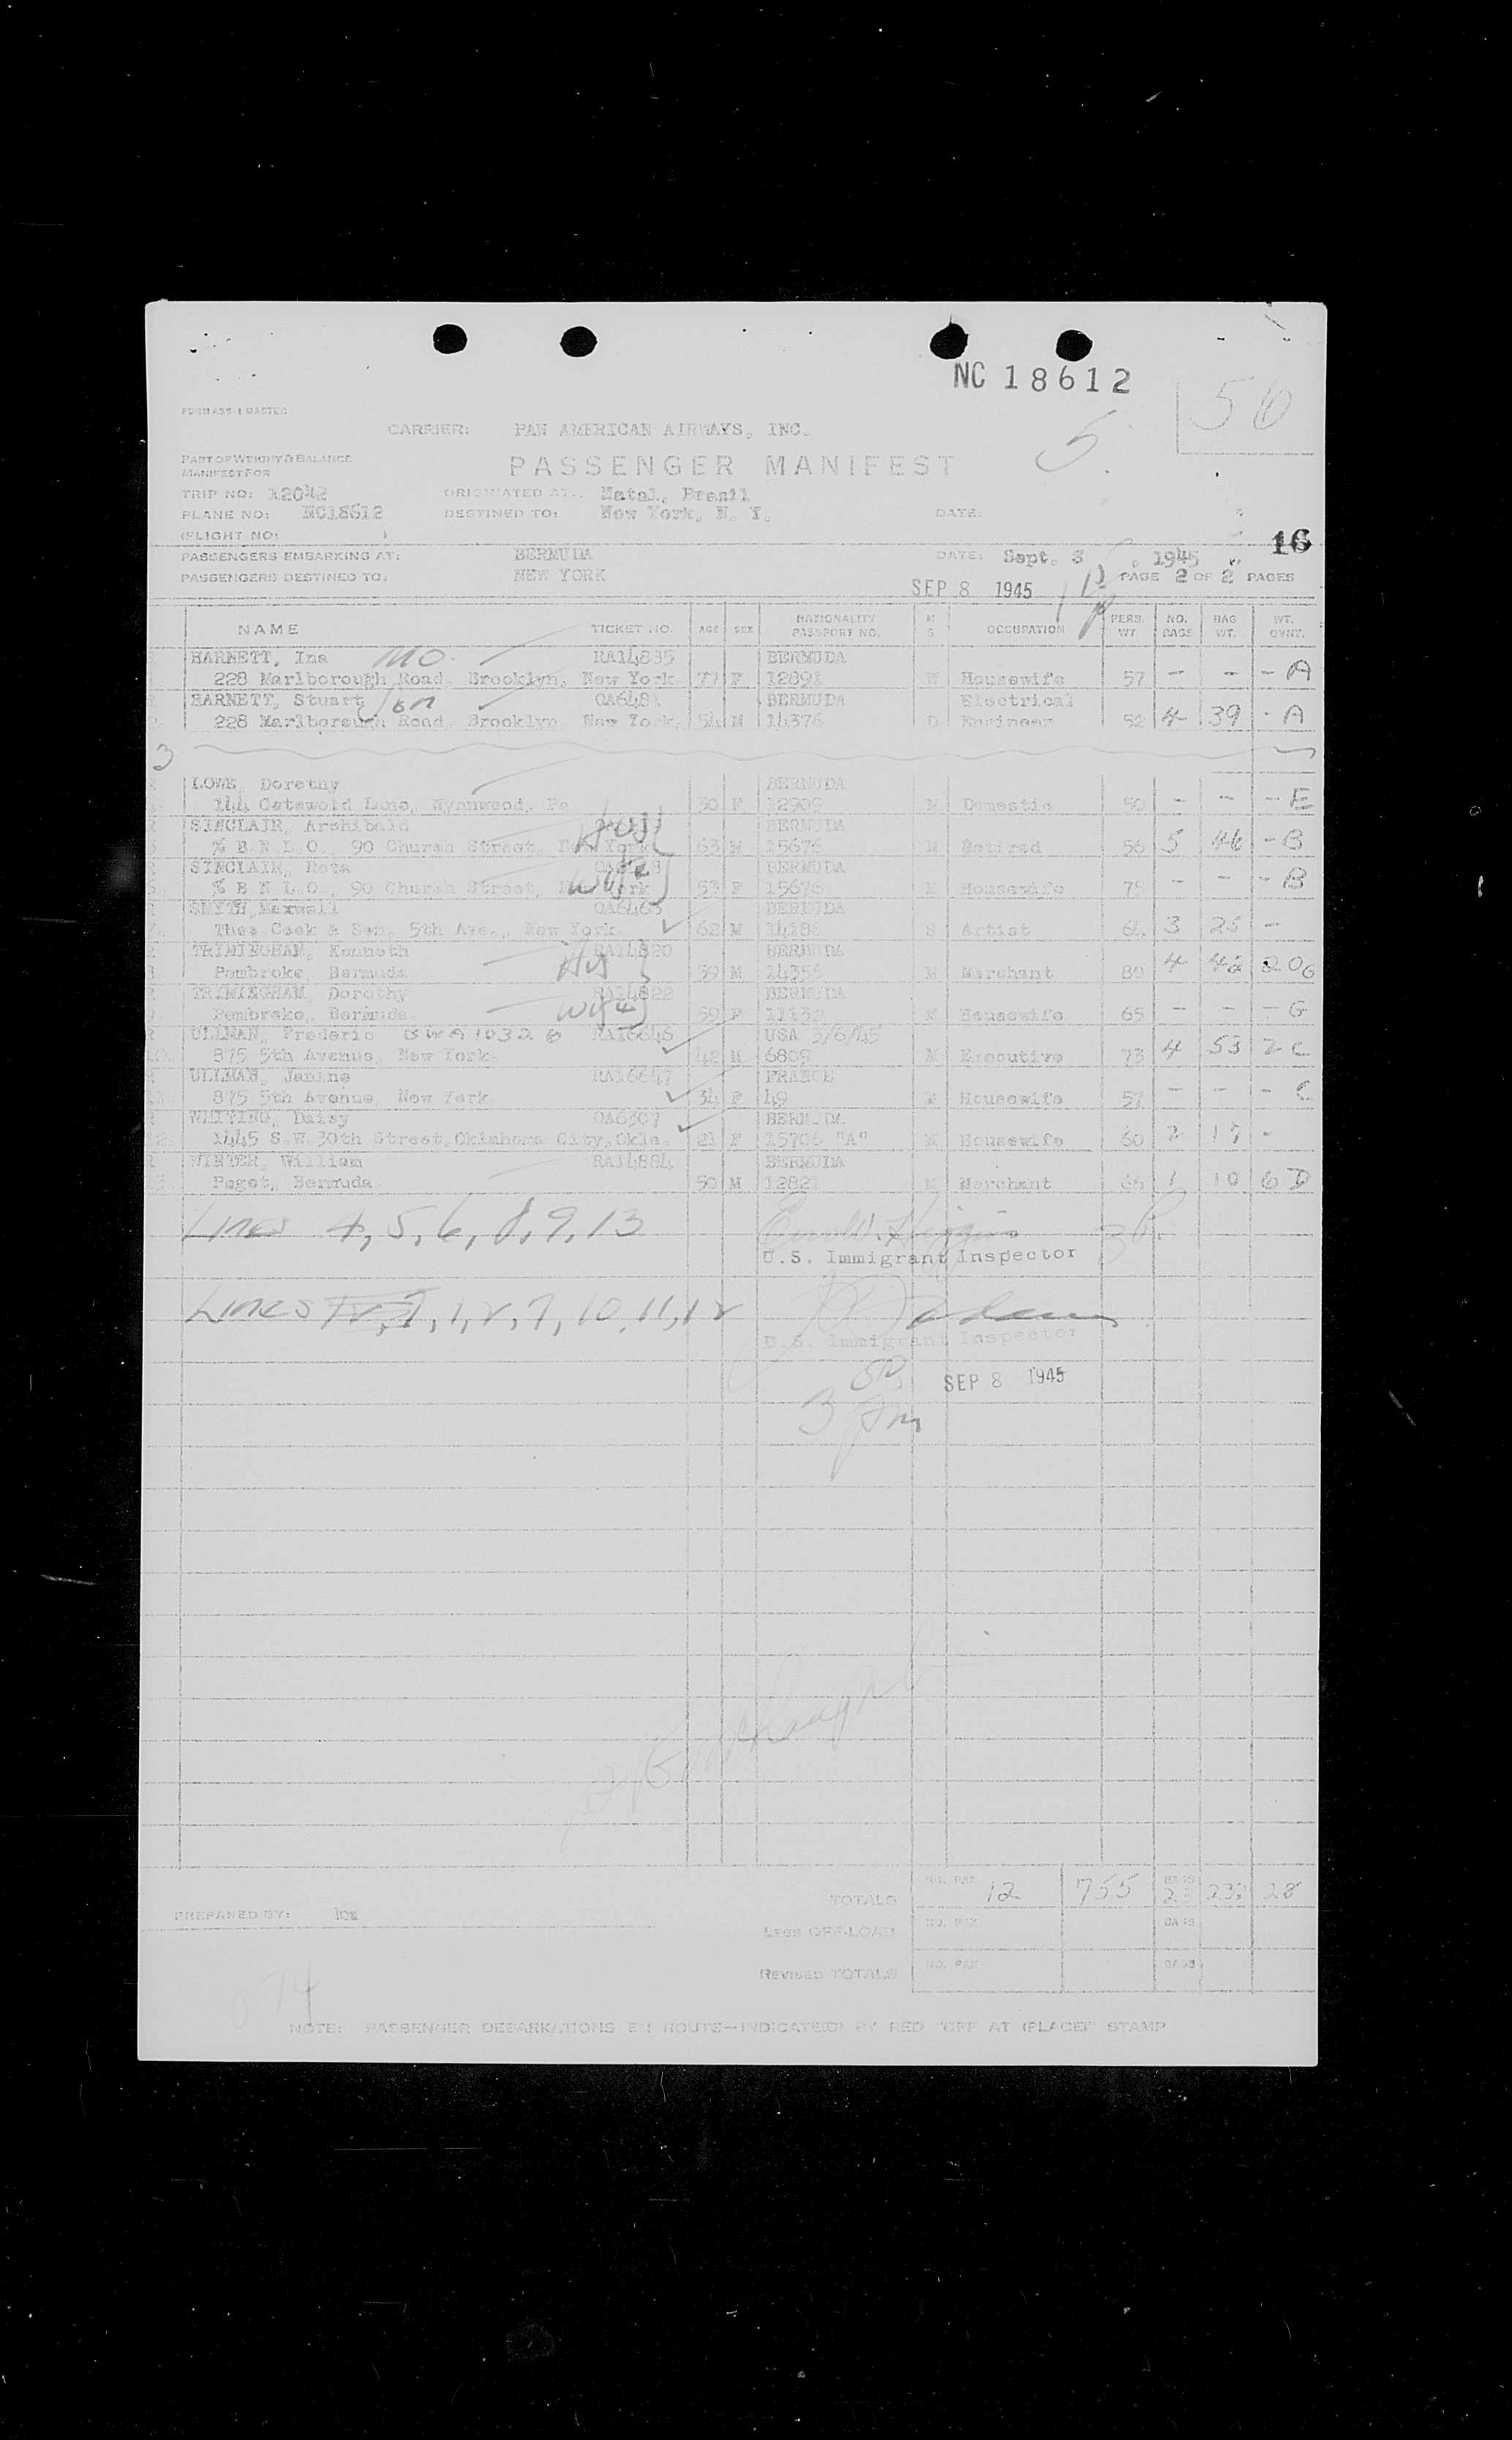 NC 18612
50
5
FORM ASS-1 MASTER
CARRIER: PAN AMERICAN AIRWAYS, INC.
PART OF WEIGHT & BALANCE
MANIFEST FOR
PASSENGER MANIFEST
TRIP NO: 12042 ORIGINATED AT: Natal, Brazil
PLANE NO: NC18612 DESTINED TO: New York, N. Y. DATE:
(FLIGHT NO: )
16
PASSENGERS EMBARKING AT: BERMUDA DATE: Sept. 8, 1945
PASSENGERS DESTINED TO: NEW YORK PAGE 2 OF 2 PAGES
SEP 8 1945
NAME TICKET NO. AGE SEX NATIONALITY PASSPORT NO. M S OCCUPATION PERS. WT. NO. BAGS BAG WT. WT. OVNT.
BARNETT, Ina MO. RA14835 BERMUDA
228 Marlborough Road, Brooklyn, New York. 77 F 12891 W Housewife 57 - - - A
BARNETT, Stuart Son OA648 BERMUDA Electrical
228 Marlborough Road, Brooklyn New York. 54 M 14376 D Engineer 52 4 39 - A
3
LOWE, Dorothy BERMUDA
144 Gatewold Lane, Wynnwood, Pa 30 F 12909 M Domestic 50 - - - E
SINCLAIR, Archibald Hus BERMUDA
% B.N.L.O., 90 Church Street, New York 63 M 15676 M Retired 56 5 46 - B
SINCLAIR, Meta BERMUDA
% B.N.L.O., 90 Church Street, New York Wife 53 F 15676 M Housewife 75 - - - B
SMYTH, Maxwell OA6463 BERMUDA
Thos. Cook & Son, 5th Ave., New York. 62 M 14188 S Artist 61 3 25 -
TRIMINGHAM, Kenneth RA14820 BERMUDA
Pembroke, Bermuda Hus 59 M 14356 M Merchant 80 4 42 20 G
TRIMINGHAM, Dorothy RA14822 BERMUDA
Pembroke, Bermuda. Wife 59 F 11132 M Housewife 65 - - - G
ULLMAN, Frederic BWA10326 RA16646 USA 3/6/45
10. 875 5th Avenue, New York. 42 M 6809 M Executive 73 4 53 2 C
ULLMAN, Janine RA16647 FRANCE
11. 875 5th Avenue, New York 34 F 49 M Housewife 57 - - - C
WHITING, Daisy OA6307 BERMUDA
12. 1445 S.W. 30th Street, Oklahoma City, Okla. 21 F 15706 "A" M Housewife 60 2 17 -
WINTER, William RA14884 BERMUDA
Paget, Bermuda. 50 M 1282 M Merchant 65 1 10 6 D
Lines 4, 5, 6, 8, 9, 13
U.S. Immigrant Inspector
Lines 1, 2, 7, 10, 11, 12
U.S. Immigrant Inspector
SEP 8 1945
3 Pm
TOTALS NO. PAX 12 755 BAGS 23 232 28
PREPARED BY:
Less OFF-LOAD NO. PAX BAGS
Revised TOTALS NO. PAX BAGS
NOTE: PASSENGER DEBARKATIONS EN ROUTE—INDICATE(D) BY RED "OFF AT (PLACE)" STAMP